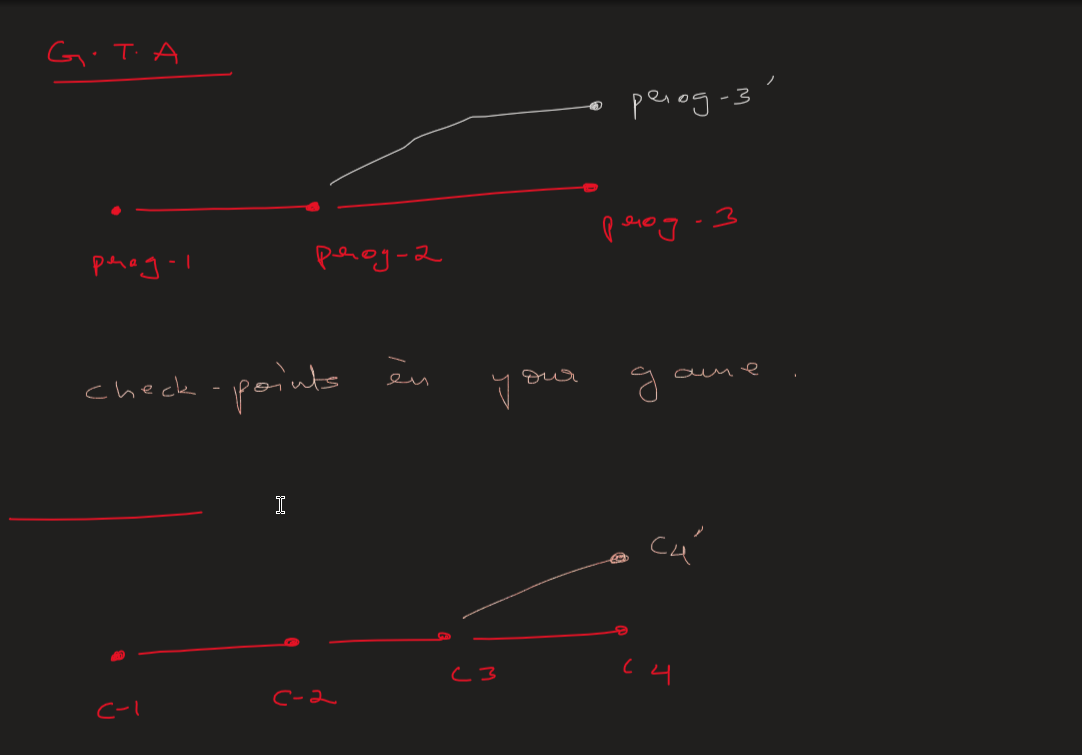 G. T. A
prog-3'
prog-3
prog-1
prog-2
check-points in your game.
C4'
C-1
C-2
C3
C4